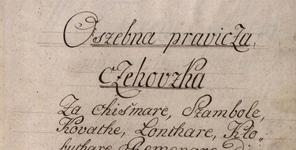 Oszebna pravicza
Czehovzka
Za chismare, Stambole,
Kovache, Lonchare, Klo-
buchare, Remenare